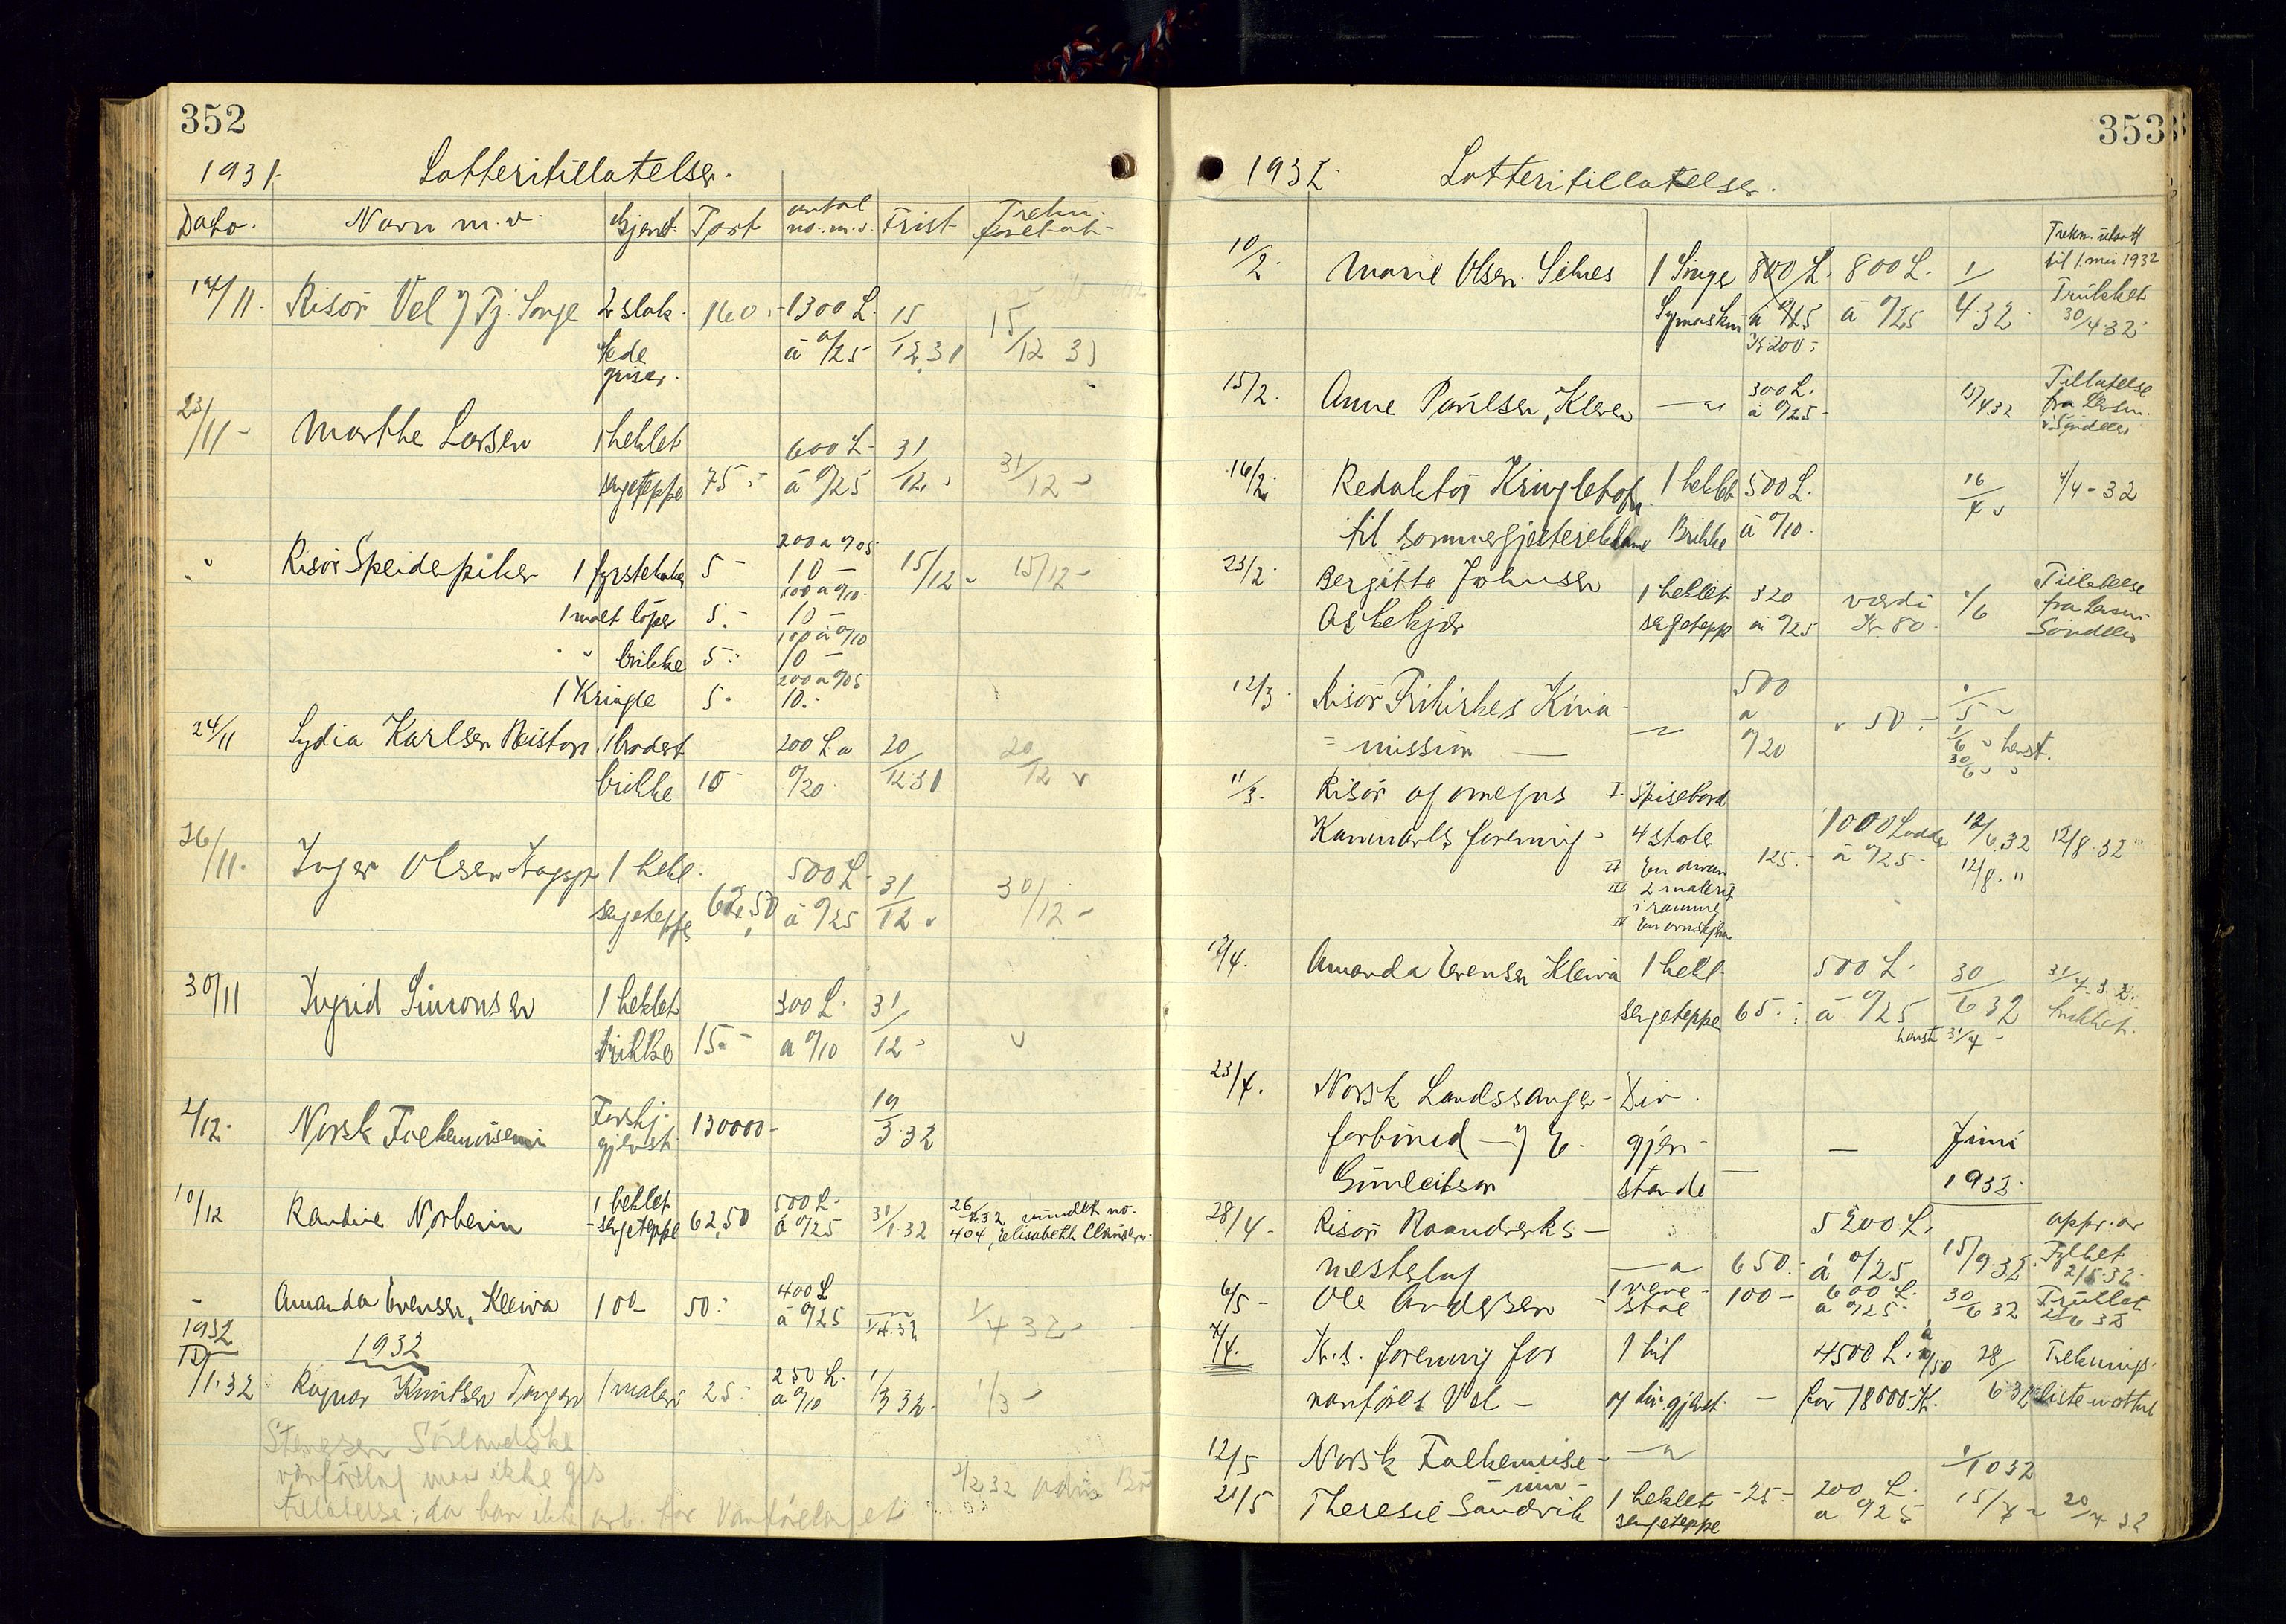 352
1931. Lotteritillatelser.
Dato. Navn m.v. Gjenst. Post antal no.m.v. Frist Trekn. foretatt
14/11. Risör Vel v/ Tj. Songe 2 slak. 160.- 1300 L. 15 15
tede à 0/25 12.31 12 31
griser.
23/11- Marthe Larsen 1 heklet 600 L- 31 31
sengeteppe 75.- à 0/25 12.- 12 -
200 a 0/05
" Risör Speiderpiker 1 fyrstekake 5- 10- 15/12- 15/12-
100 a 0/10.
1 malt löper 5.- 10-
100 à 0/10
" " brikke 5.- 10-
200 a 0/05
1 Kringle 5- 10.-
24/11 Lydia Karlsen Buston. 1 brodert 200 L. a 20 20
brikke 10- 0/20 12 31 12 v
26/11. Inger Olsen Krapp 1 hekl. 500 L- 31
sengeteppe 62,50 à 0/25 12 v 30/12-
30/11 Ingrid Simonsen 1 heklet 300 L. 31
brikke 15.- a 0/10 12- v
2/12. Norsk Folkemuseum Forskj. 130000- 19
gjenst. 3.32
10/12 Randine Norbenn 1 heklet 500 L.
sengeteppe 62,50 à 0/25 31/1.32 26/2.32 vundet no. 404, Elisabeth Clausen.
- Amanda Evensen, Kleiva 1 do 50.- 400 L à 0/25 1/4.32 1/4 32-
1932 1932
12/1.32 Ragnar Knutsen Tangen 1 maleri 25.- 250 L. a 0/10 1/3 32. 1/3-
Stensen Sörlandske
vanförelag maa ikke gis
tillatelse, da han ikke arb. for Vanförelaget
2/2 32
353
1932. Lotteritillatelser.
Trekn. utsatt
10/2. Marie Olsen Silnes 1 Singer 800 L. 800 L. 1/ til 1. mai 1932
Symaskin à 0/25 à 0/25 4.32 Trukket
Kr 200.- 30/4 32.
15/2. Anne Paulsen, Kleven -"- 300 L. à 0/25- 15/4 32 Tillatelse
fra Lensm.
i Söndeled
16/2. Redaktör Kringlebotn. 1 heklet 500 L. 16 4/4-32
til sommergjestereklame Brikke à 0/10. 4 v
23/2. Bergitte Johnsen 1 heklet 320 verdi 1/6 Tillatelse
Asbekjær sengeteppe à 0/25 Kr 80. fra Lensm.
Söndeled
12/3. Risör Frikirkes Kina- 500
= mission - -"- a 0/20 " 50.- 1/5 -
1/6 " henst.
30/6 " "
11/3. Risör og omegns I. Spisebord
Kanináls forening - 4 stoler 125.- 1000 Lodder 12/6.32 12/8.32
II En divan à 0/25- 12/8. "
III 2 malerit
i ramme
IV En ornskjær
12/4. Amanda Evensen Kleiva 1 hekl. 500 L. 30 31/7.32.
sengeteppe 65.- à 0/25 6 32 trukket.
henst 31/7-
23/4. Norsk Landssanger- Div.
forbund - v/ E. gjen- - Juni
Gunleitson stande - 1932.
28/4- Risör Haandverks- 5200 L. appr. av
mesterlag -"- 650.- à 0/25 15/9.32. Fylket 2/5.32.
6/5- Ole Andersen 1 kurv- 100- 600 L. 30 Trukket
stol a 0/25- 6 32 2/6 32
7/4. Kr.s. forening for 1 bil 4500 L. à 0/50 28/ Treknings-
vanföres Vel - og div. gjenst. - for 18000 Kr. 6 32 liste mottat
12/5 Norsk Folkemuse- -"- 1/10 32
um-
21/5 Theresie Sandvik 1 heklet -25- 200 L. 15/7- 20/7 32
sengeteppe a 0/25